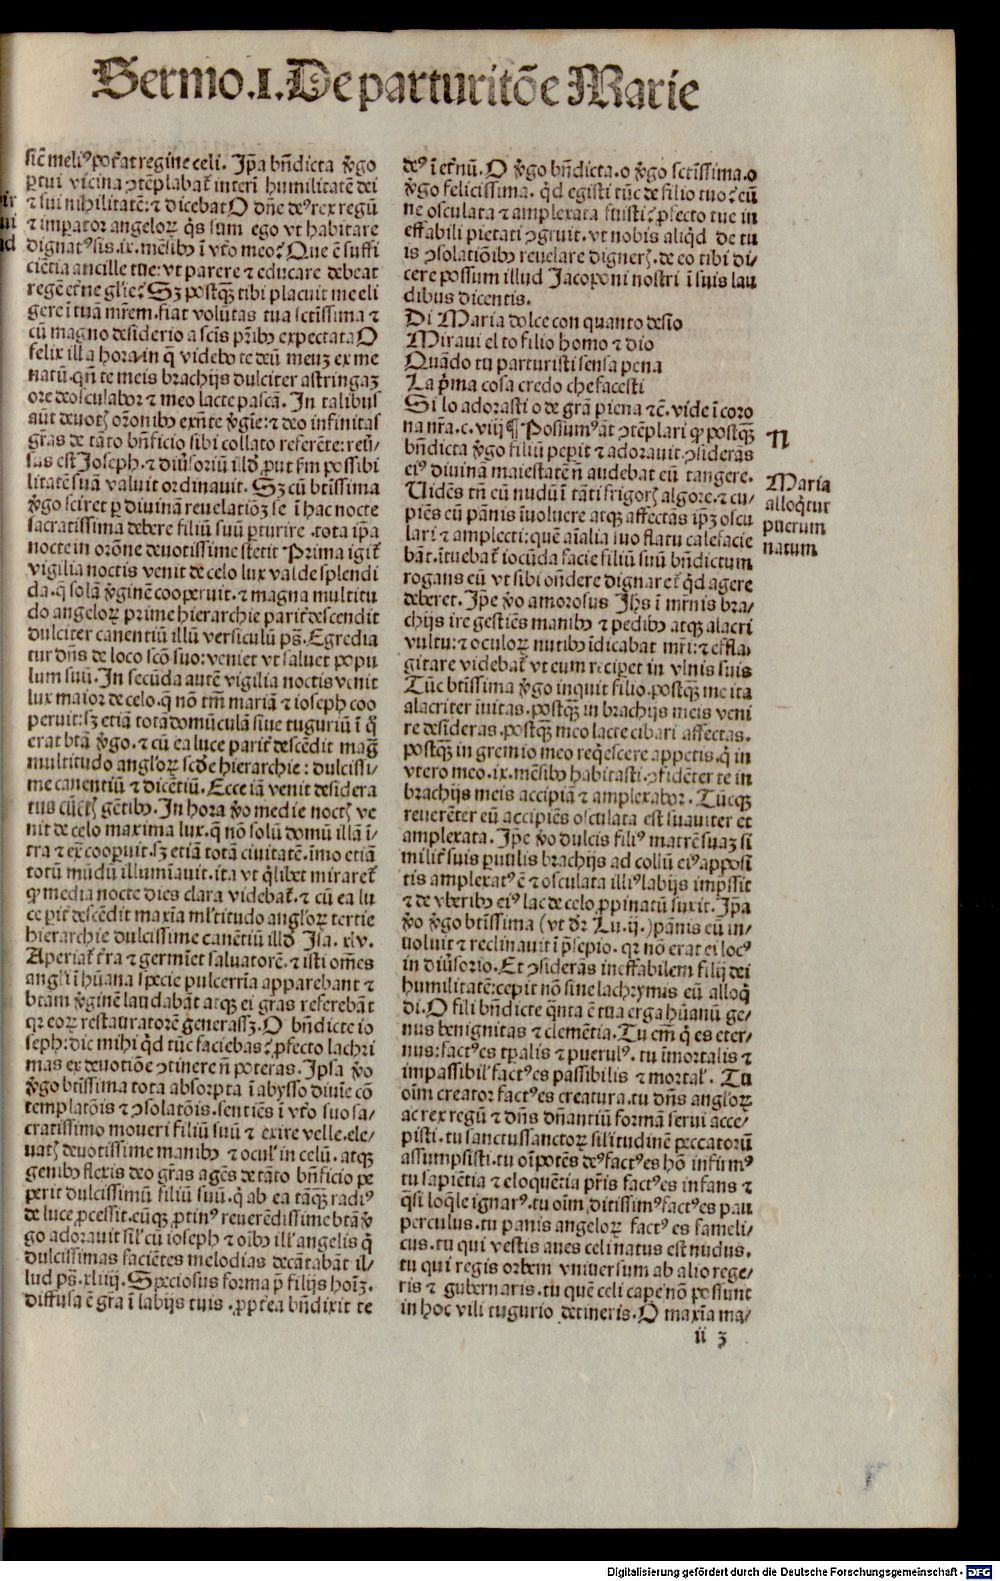 Sermo.I.De parturitōe Marie
sic̄ meliꝰ poťat regine celi. Ip̄a bn̄dicta v̓go
ꝑtui vicina ↄtēplabat̃ interī humilitatē dei
⁊ sui nihilitatē:⁊ dicebat O dn̄e deꝰ rex regū
⁊ impator angeloꝝ q̇s sum ego vt habitare
dignatꝰ sis.ix.mēsibꝰ ī vťo meo? Que ē suffi
ciētia ancille tue: vt parere ⁊ educare debeat
regē eťne gl̄ie? Sꝫ postꝙ̄ tibi placuit me eli
gere ī tuā mr̄em.fiat volūtas tua sctīssima ⁊
cū magno desiderio a sctīs pr̄ibꝰ expectata O
felix illa hora/in q̇ videbo te deū meuꝫ ex me
natū.qn̄ te meis brachijs dulciter astringaꝫ
ore deosculabor ⁊ meo lacte pascā. In talibus
aūt deuotꝭ or̄onibꝰ exn̄te v̓gīe:⁊ deo infinitas
gr̄as de tāto bn̄ficio sibi collato referēte: reuꝰ̄/
sus est Joseph.⁊ diu̓soriū illd̄ ꝓut ẜm possibi
litatē suā valuit ordinauit. Sꝫ cū btīssima
v̓go sciret ꝑ diuinā reuelatiōꝫ se ī hac nocte
sacratissima debere filiū suū ꝑturire.tota ip̄a
nocte in orōne deuotissime stetit Prima igit̃
vigilia noctis venit de celo lux valde splendi
da.q̄ solā v̓ginē cooperuit.⁊ magna multitu
do angeloꝝ prime hierarchie parit̓ descendit
dulciter canentiū illū versiculū ps̄. Egredia
tur dn̄s de loco scō suo: veniet vt saluet popu
lum suū. In secūda autē vigilia noctis venit
lux maior de celo.q̄ nō tm̄ mariā ⁊ ioseph coo
peruit: sꝫ etiā totā domūculā siue tuguriū ī q̇
erat btā v̓go.⁊ cū ea luce parit̓ descēdit mag̅
multitudo angl̓oꝝ scd̄e hierarchie: dulcissi/
me canentiū ⁊ dicētiū. Ecce iā venit desidera
tus cūctꝭ gētibꝰ. In hora v̓o medie noctꝭ ve
nit de celo maxima lux.q̄ nō solū domū illā ī/
tra ⁊ ex̄ cooꝑuit.sꝫ etiā totā ciuitatē.īmo etiā
totū mūdū illumīauit.ita vt q̓libet miraret̃
ꝙ media nocte dies clara videbat̃.⁊ cū ea lu
ce ꝑit̓ descēdit maxīa ml̓titudo angl̓oꝝ tertie
hierarchie dulcissime canētiū illd̄ Isa.xlv.
Aperiat̃ ťra ⁊ germīet saluatorē.⁊ isti om̄es
angl̓i ī hūana specie pulcerrīa apparebant ⁊
btām v̓ginē laudabāt atqꝫ ei gr̄as referebāt
qꝛ eoꝝ restauratorē generassꝫ. O bn̄dicte io
seph: dic mihi q̇d tūc faciebas? ꝓfecto lachri
mas ex deuotiōe ↄtinere n̄ poteras. Ipsa v̓o
v̓go btīssima tota absorpta ī abysso diuīe cō
templatōis ⁊ ↄsolatōis.sentiēs ī vťo suo sa/
cratissimo moueri filiū suū ⁊ exire velle.ele/
uatꝭ deuotissime manibꝰ ⁊ ocul̓ in celū.atqꝫ
genibꝰ flexis deo gr̄as agēs de tāto bn̄ficio pe
perit dulcissimū filiū suū.q̇ ab ea tāqꝫ̄ radiꝰ
de luce ꝓcessit.eūqꝫ ꝓtinꝰ reuerēdissime btā v̓
go adorauit sil̓ cū ioseph ⁊ oībꝰ ill̓ angelis q̇
dulcissimas faciētes melodias decātabāt il/
lud ps̄.xliiij. Speciosus forma p̄ filijs hoīꝫ.
diffusa ē gr̄a ī labijs tuis.ꝓpťea bn̄dixit te
deꝰ ī eťnū. O v̓go bn̄dicta.o v̓go sctīssima.o
v̓go felicissima.q̇d egisti tūc de filio tuo? eū
ne osculata ⁊ amplexata fuisti? ꝓfecto tue in
effabili pietati ↄgruit.vt nobis aliq̇d de tu
is ↄsolatiōibꝰ reuelare dignerꝭ.de eo tibi di/
cere possum illud Jacoponi nostri ī suis lau
dibus dicentis.
Di Maria dolce con quanto desio
Miraui el to filio homo ⁊ dio
Quādo tu parturisti sensa pena
La p̓ma cosa credo che facesti
Si lo adorasti o de grā piena ⁊c̄.vide ī coro
na nr̄a.c.viij ¶ Possumꝰ āt ↄtēplari ꝙ postꝙ̄
bn̄dicta v̓go filiū peꝑit ⁊ adorauit.ↄsiderās
eiꝰ diuinā maiestatē n̄ audebat eū tangere.
Uidēs tn̄ eū nudū ī tāti frigorꝭ algore.⁊ cu/
piēs eū pānis īuoluere atqꝫ affectās ip̄ꝫ oscu
lari ⁊ amplecti: quē aīalia suo flatu calefacie
bāt.ītuebat̃ iocūda facie filiū suū bn̄dictum
rogans eū vt sibi on̄dere dignaret̃ q̇d agere
deberet. Ip̄e v̓o amorosus Jh̄s ī mr̄nis bra/
chijs ire gestiēs manibꝰ ⁊ pedibꝰ atqꝫ alacri
vultu:⁊ oculoꝝ nutibꝰ īdicabat mr̄i:⁊ effla/
gitare videbat̃ vt eum reciꝑet in vlnis suis
Tūc btīssima v̓go inquit filio.postꝙ̄ me ita
alacriter īuitas.postꝙ̄ in brachijs meis veni
re desideras.postꝙ̄ meo lacte cibari affectas.
postꝙ̄ in gremio meo req̇escere appetis.q̇ in
vtero meo.ix.mēsibꝰ habitasti.ↄfidēter te in
brachijs meis accipiā ⁊ amplexabor. Tūcqꝫ
reuerēter eū accipiēs osculata est suauiter et
amplexata. Ip̄e v̓o dulcis filiꝰ matrē suaꝫ si
milit̓ suis ꝑuulis brachijs ad collū eiꝰ apposi̅
tis amplexatꝰ ē ⁊ osculata illiꝰ labijs imp̄ssit
⁊ de vberibꝰ eiꝰ lac de celo ꝓpinatū suxit. Ip̄a
v̓o v̓go btīssima (vt dr̄ Lu.ij.) pānis eū in/
uoluit ⁊ reclinauit ī p̄sepio.qꝛ nō erat ei locꝰ
in diu̓sorio. Et ↄsiderās ineffabilem filij dei
humilitatē: cepit nō sine lachrymis eū alloq̇
di. O fili bn̄dicte q̄nta ē tua erga hūanū ge/
nus benignitas ⁊ clemētia. Tu em̄ q̇ es eter/
nus: factꝰ es tꝑalis ⁊ puerulꝰ.tu īmortalis ⁊
impassibil̓ factꝰ es passibilis ⁊ mortal̓. Tu
oīm creator factꝰ es creatura.tu dn̄s angl̓oꝝ
ac rex regū ⁊ dn̄s dn̄antiū formā serui acce/
pisti.tu sanctus sanctoꝝ sil̓itudinē peccatorū
assumpsisti.tu oīpotēs deꝰ factꝰ es hō infirmꝰ
tu sapiētia ⁊ eloquētia pr̄is factꝰ es infans ⁊
q̄si loq̄le ignarꝰ.tu oīm ditissimꝰ factꝰ es pau
perculus.tu panis angeloꝝ factꝰ es fameli/
cus.tu qui vestis aues celi natus est nudus.
tu qui regis orbem vniuersum ab alio rege/
ris ⁊ gubernaris.tu quē celi caꝑe nō possunt
in hoc vili tugurio detineris. O maxīa ma/
N
Maria
alloq̇tur
puerum
natum
ii 3
Digitalisierung gefördert durch die Deutsche Forschungsgemeinschaft - DFG